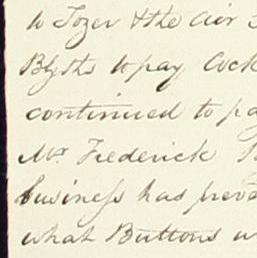 to Tozer & the Air
Blyths to pay Cock
continued to pa
Mr Frederick
business has preve
what Buttons w